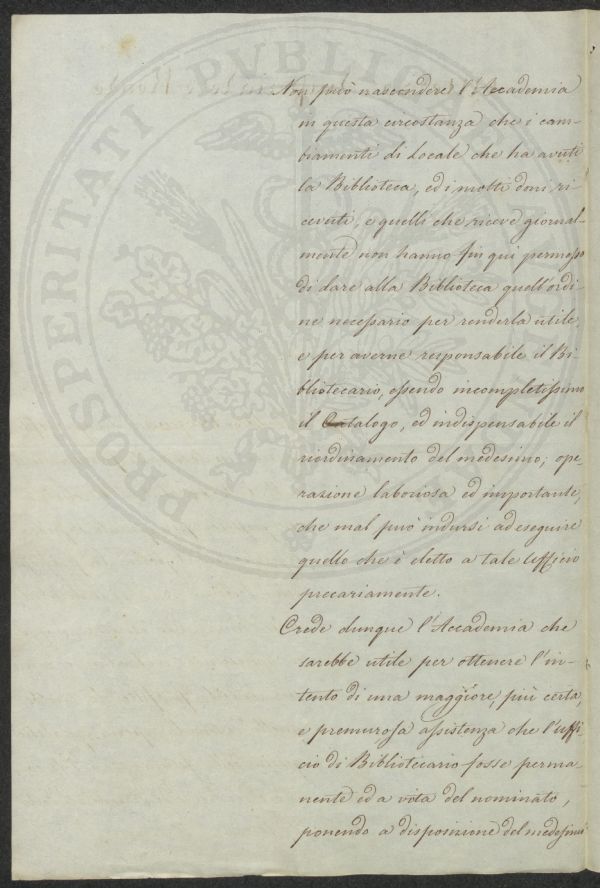 Non può nascondere l'Accademia
in questa circostanza che i cam-
biamenti di Locale che ha avuti
la Biblioteca, ed i molti doni ri-
cevuti, e quelli che riceve giornal-
mente non hanno fin qui permesso
di dare alla Biblioteca quell'ordi-
ne necessario per renderla utile,
e per averne responsabile il Bi-
bliotecario, essendo incompletissimo
il Catalogo, ed indispensabile il
riordinamento del medesimo; ope-
razione laboriosa ed importante,
che mal può indursi ad eseguire
quello che è eletto a tale Ufficio
precariamente.
Crede dunque l'Accademia che
sarebbe utile per ottenere l'in-
tento di una maggiore, più certa,
e premurosa assistenza che l'uffi-
cio di Bibliotecario fosse perma-
nente ed a vita del nominato,
ponendo a disposizione del medesimo
PROSPERITATI PVBLICA